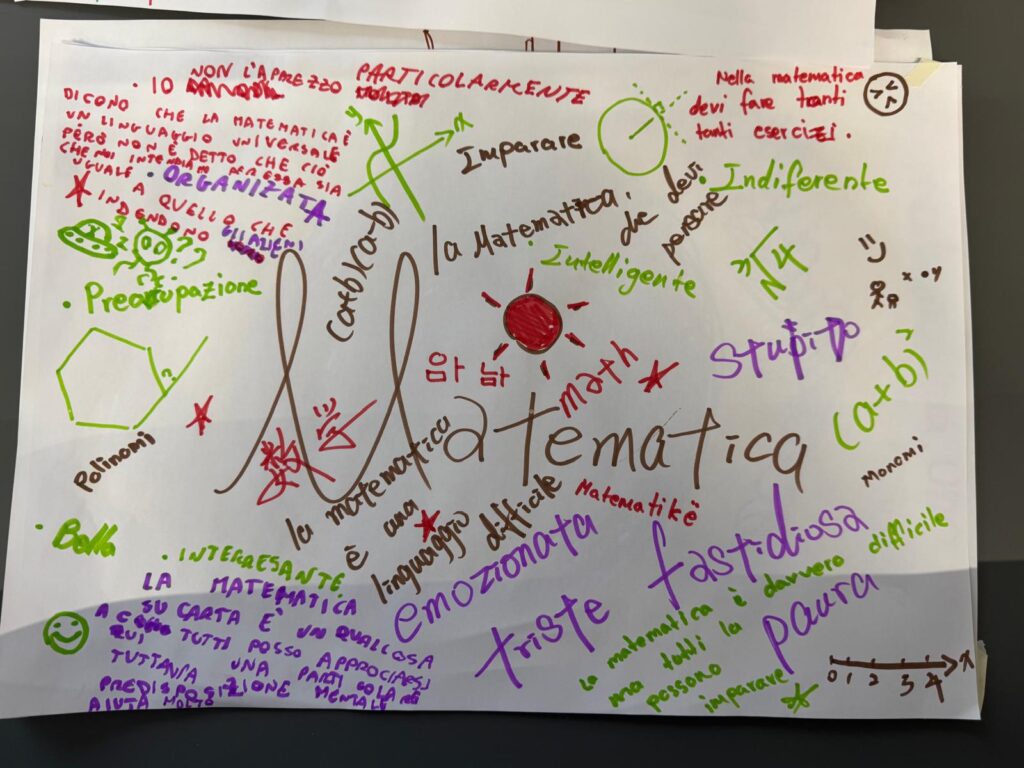 · IO NON L'APREZZO PARTICOLARMENTE
DICONO CHE LA MATEMATICA È
UN LINGUAGGIO UNIVERSALE
PERÒ NON È DETTO CHE CIÒ
CHE NOI INTENDIAMO PER ESSA SIA
UGUALE A QUELLO CHE
INDENDONO GLI ALIENI
· ORGANIZATA
y x
Imparare
Nella matematica
devi fare tranti
tanti esercizi.
· Indiferente
la Matematica,
de devi
pensare
· Intelligente
(a+b)(a-b)
· Preocupazione
???
√4
x · y
Stupito
음 낚
math
(a+b)²
Matematica
Polinomi
Monomi
la matematica
è una
linguaggio difficile
Matematikë
· Bella
· INTERRESANTE
emozionata
fastidiosa
triste
paura
LA MATEMATICA
SU CARTA È UN QUALCOSA
A CUI TUTTI POSSO APPROCIARSI
TUTTAVIA UNA PARTICOLARE
PREDISPOSIZIONE MENTALE
AIUTA MOLTO
La matematica è davvero difficile
ma tutti la
possono
imparare
0 1 2 3 4 x